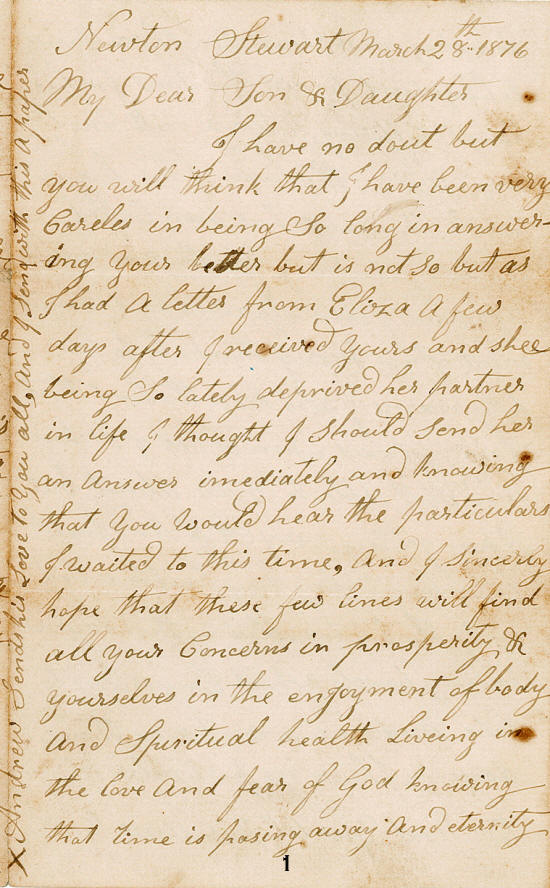 Newton Stewart March 28th 1876
My Dear Son & Daughter
I have no dout but
you will think that I have been very
Careles in being So long in answer-
ing your letter but is not so but as
I had a letter from Eliza a few
days after I received yours and shee
being So lately deprived her partner
in life I thought I should Send her
an Answer imediately and knowing
that you would hear the particulars
I waited to this time, And I Sincerly
hope that these few lines will find
all your Concerns in prosperity &
yourselves in the enjoyment of body
And Spuritual health Liveing in
the love And fear of God knowing
that time is pasing away And eternity
1
X Andrew Sends his Love to You all, And I Send with this A paper